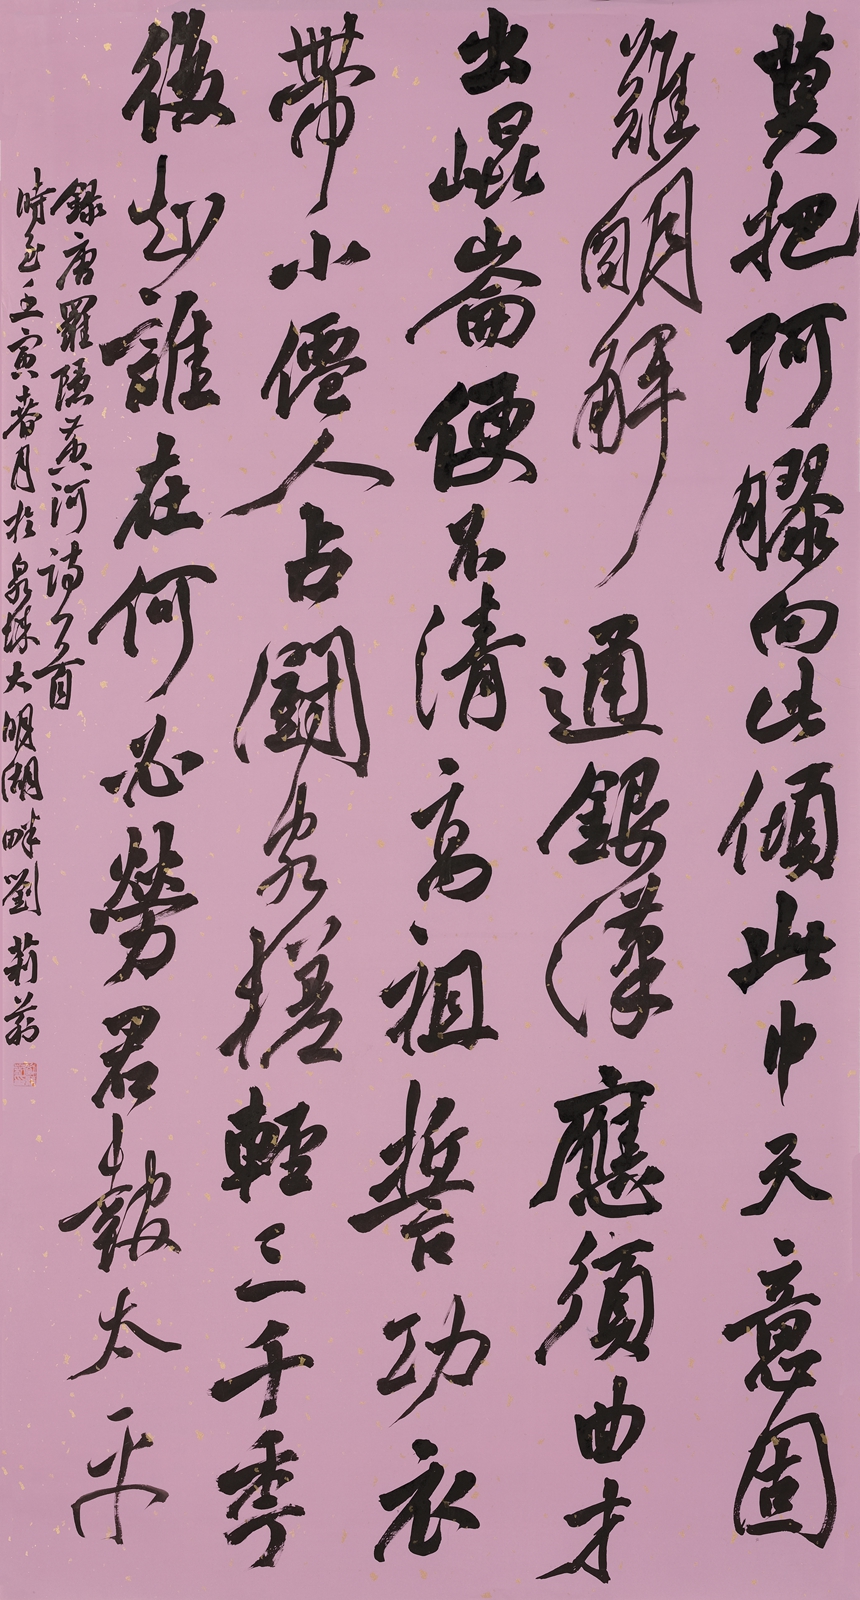 莫把阿膠向此傾此中天意固
難明解通銀漢應須曲才
出崑崙便不清高祖誓功衣
帶小僊人占鬭客槎輕三千秊
後知誰在何必勞君報太平
錄唐羅隱黃河詩一首
時至壬寅春月於泉城大明湖畔劉莉